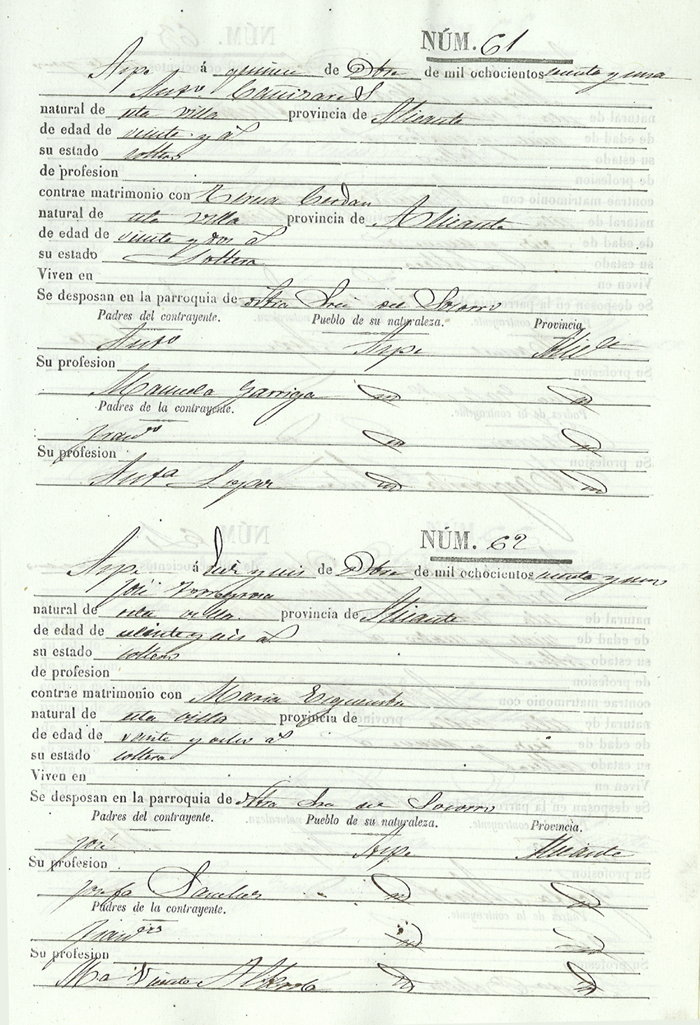 NÚM. 61
Aspe á quince de Dbre de mil ochocientos sesenta y uno
Anto Cañizares
natural de esta villa provincia de Alicante
de edad de veinte y a
su estado soltero
de profesion
contrae matrimonio con Teresa Cerdan
natural de esta villa provincia de Alicante
de edad de veinte y dos a
su estado Soltera
Viven en
Se desposan en la parroquia de Ntra Sra del Socorro
Padres del contrayente. Pueblo de su naturaleza. Provincia
Anto Aspe Alicte
Su profesion
Manuela Garriga id id
Padres de la contrayente.
Franco id id
Su profesion
Anta id id
NÚM. 62
Aspe á diez y seis de Dbre de mil ochocientos sesenta y uno
José Torregrosa
natural de esta villa provincia de Alicante
de edad de veinte y seis a
su estado soltero
de profesion
contrae matrimonio con Maria
natural de esta villa provincia de
de edad de veinte y ocho a
su estado soltera
Viven en
Se desposan en la parroquia de Ntra Sra del Socorro
Padres del contrayente. Pueblo de su naturaleza. Provincia.
José Aspe Alicante
Su profesion
Josefa Sanchez id id
Padres de la contrayente.
Franco id id
Su profesion
Ma id id